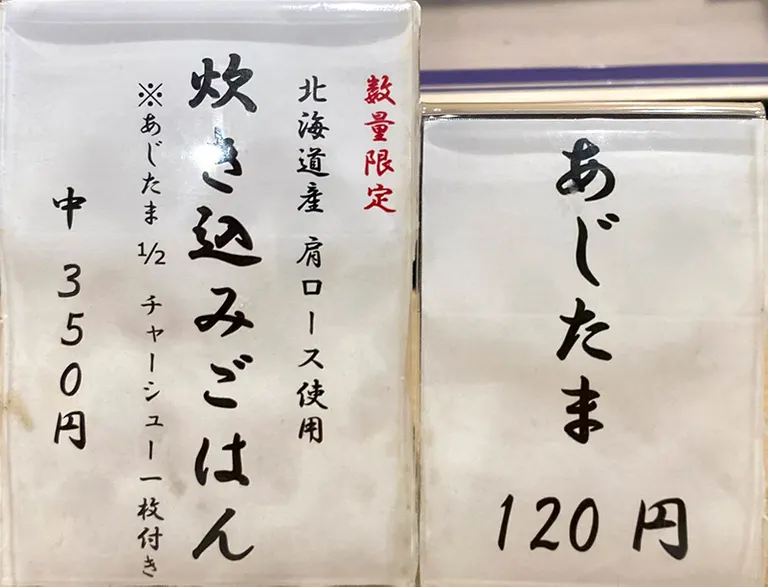 数量限定
北海道産 肩ロース使用
炊き込みごはん
※あじたま 1/2 チャーシュー一枚付き
中 350円
あじたま
120円